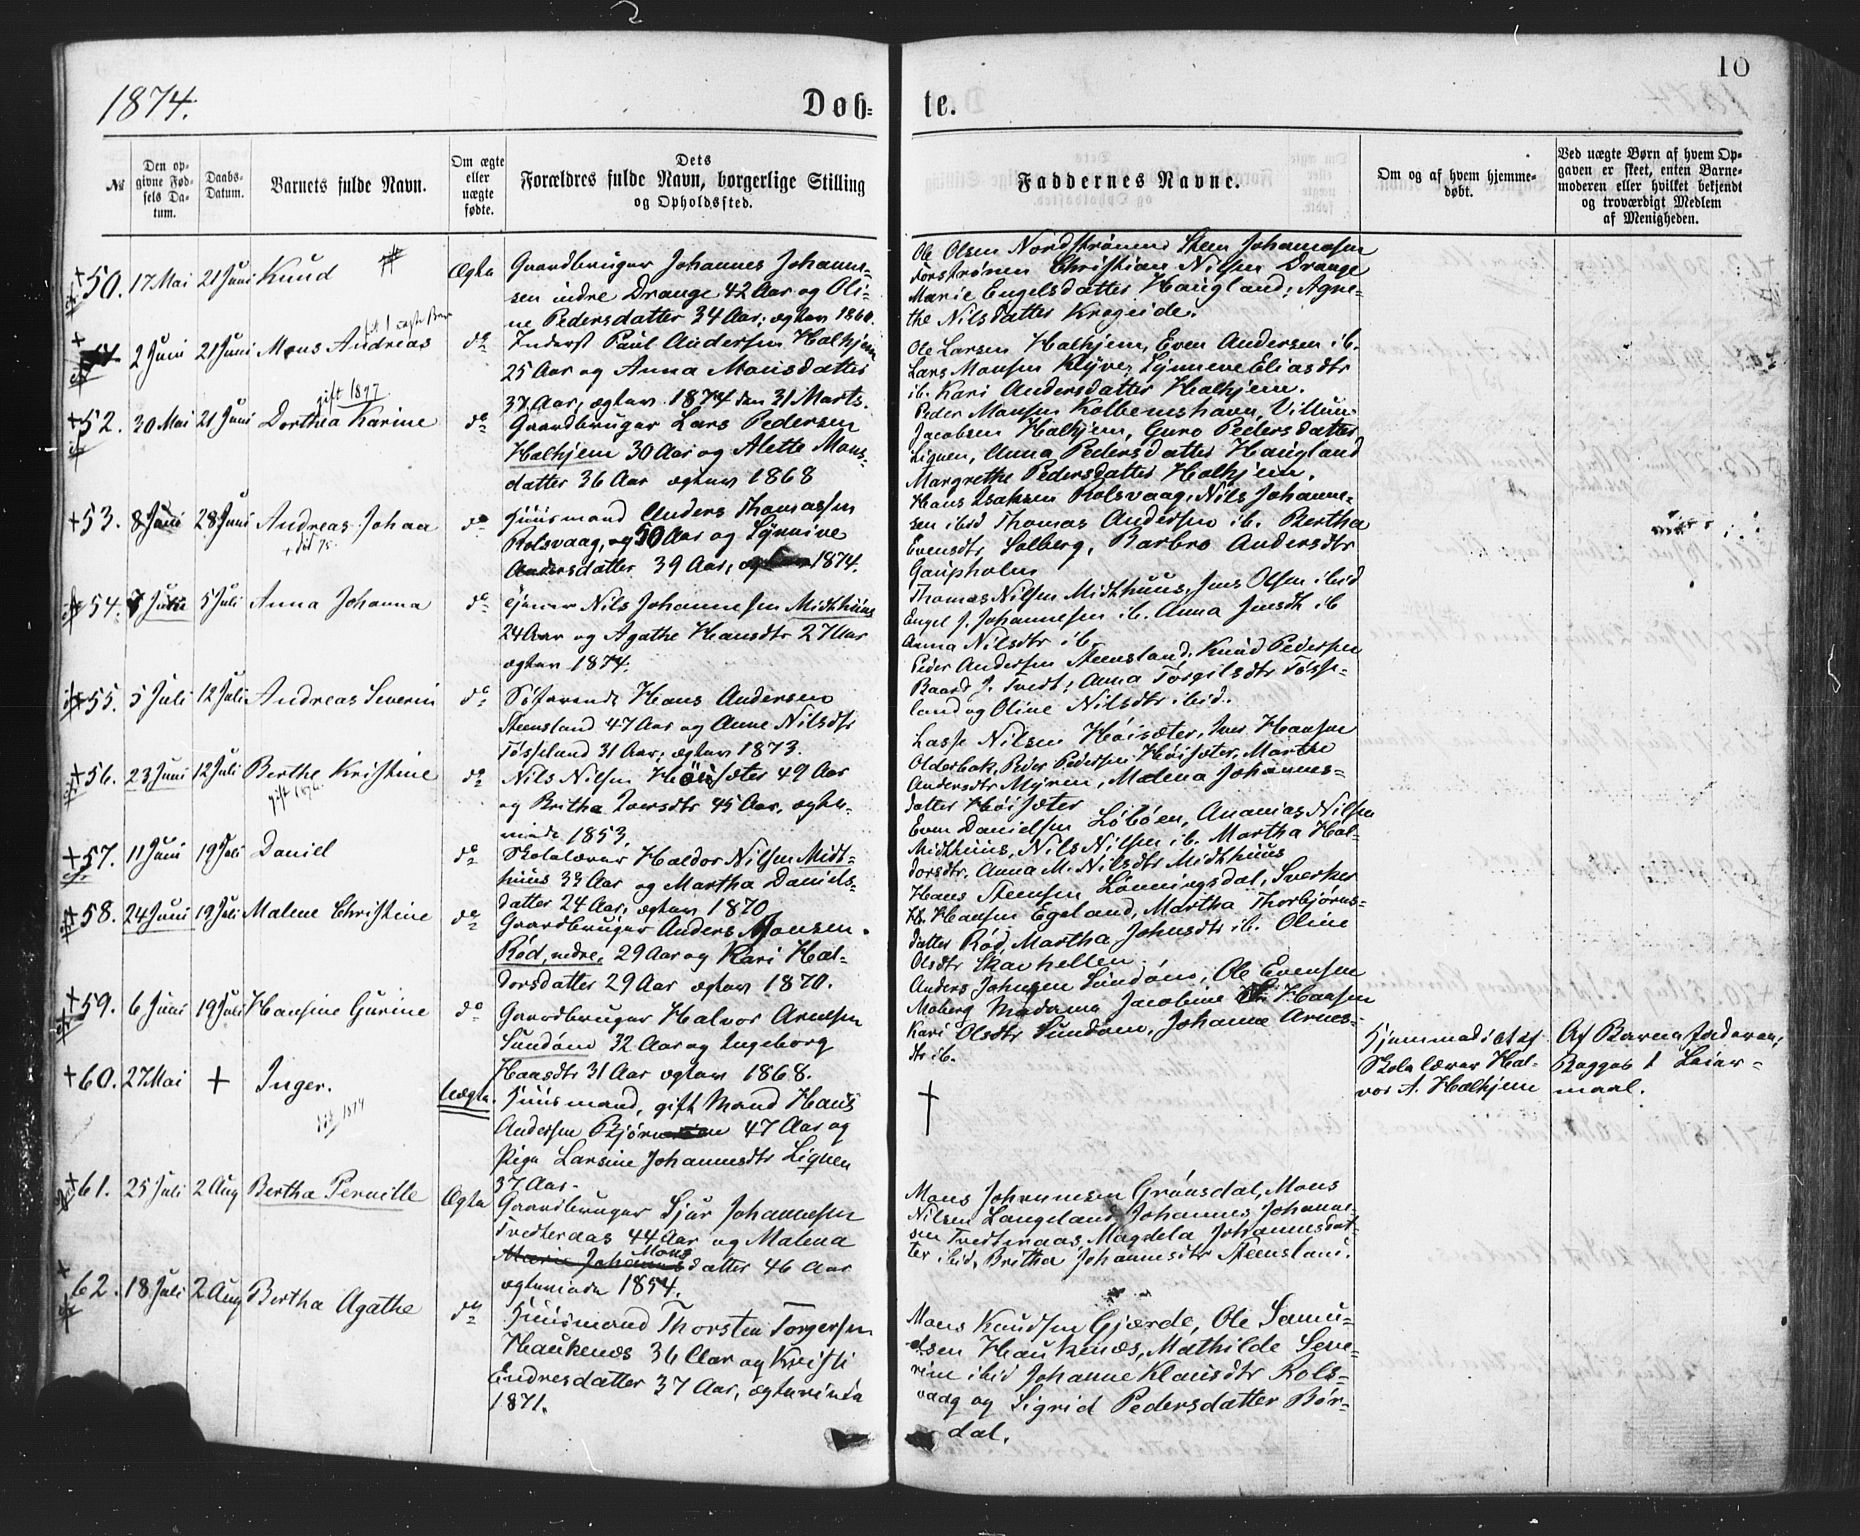 10
1874.
Døb=
te.
№
Den op-
givne Fød-
sels Da-
tum.
Daabs-
Datum.
Barnets fulde Navn.
Om ægte
eller
uægte
fødte.
Dets
Forældres fulde Navn, borgerlige Stilling
og Opholdssted.
Faddernes Navne.
Om og af hvem hjemme-
døbt.
Ved uægte Børn af hvem Op-
gaven er skeet, enten Barne-
moderen eller hvilket bekjendt
og troværdigt Medlem
af Menigheden.
50. 17 Mai 21 Juni Knud Ægte
Gaardbruger Johannes Johanne-
sen indre Drange 42 Aar og Oli-
ne Pedersdatter 34 Aar; ægtev 1860.
Ole Olsen Nordstrønen Steen Johannesen
Christian Nilsen Drange
Marie Engelsdatter Haugland, Agne-
the Nilsdatter Krogeide.
2 Juni 21 Juni Mons Andreas do
Inderst Paul Andersen Halhjem
25 Aar og Anna Monsdatter
37 Aar; ægtev. 1874 den 31 Marts.
Ole Larsen Halhjem, Even Andersen ib.
Lars Monsen Klyve, Synneve Eliasdtr
ib. Kari Andersdatter Halhjem.
52. 30 Mai 21 Juni Dorthea Karine do
gift 1897
Gaardbruger Lars Pedersen
Halhjem 30 Aar og Alette Mons-
datter 36 Aar ægtev 1868
Peder Monsen Kolbenshavn, Villum
Jacobsen Halhjem, Guro Pedersdatter
Lignen, Anna Pedersdatter Haugland
Margrethe Pedersdatter Halhjem.
53. 8 Juni 28 Juni Andreas Johan do
+ død 75.
Huusmand Anders Thomassen
Rolsvaag, 50 Aar og Synnive
Andersdatter 39 Aar, 1874.
Hans Isaksen Rolsvaag, Nils Johanne-
sen ibid Thomas Andersen ib. Bertha
Evensdtr, Solberg, Barbro Andersdtr
Gaupholm
54. 5 Juli Anna Johanna do
Nils Johannesen Midthuus
24 Aar og Agathe Hansdtr 27 Aar
ægtev 1874.
Thomas Nilsen Midthuus, Jens Olsen ibid
Engel J. Johannesen ib. Anna Jensdtr ib
Anna Nilsdtr ib.
55. 5 Juli 12 Juli Andreas Severin do
Søfarende Hans Andersen
Steensland 47 Aar og Anne Nilsdtr
Tøsseland 31 Aar; ægtev 1873.
Peder Andersen Steensland, Knud Pedersen
Baard J. Tvedt; Anna Torgilsdtr Tøsse-
land og Oline Nilsdtr ibid.
56. 23 Juni 12 Juli Berthe Kristine do
Nils Nilsen Høisæter 49 Aar
og Britha Iversdtr 45 Aar, ægte-
viede 1853.
Lasse Nilsen Høisæter, Iver Haansen
Olderbak, Peder Pedersen Høisæter, Marthe
Andersdtr Myren, Malena Johannes-
datter Høisæter
57. 11 Juni 19 Juli Daniel do
Skolelærer Haldor Nilsen Midt-
huus 33 Aar og Martha Daniels-
datter 24 Aar, ægtev 1870
Even Danielsen Løbøen, Ananias Nilsen
Midthuus, Nils Nilsen ib. Martha Hal-
dorsdtr, Anna M. Nilsdtr Midthuus
58. 24 Juni 19 Juli Malene Christine do
Gaardbruger Anders Monsen
Rød, nedre, 29 Aar og Kari Hal-
dorsdatter 29 Aar ægtev 1870.
Hans Steensen Lønningsdal, Sverker
H. Hansen Egeland, Martha Thorbjørns-
datter Rød, Martha Johnsdtr ib. Oline
Olsdtr Skarhellen
59. 6 Juni 19 Juli Hansine Gurine do
Gaardbruger Halvor Arnesen
Sundøen 32 Aar og Ingeborg
Haasdtr 31 Aar ægtev 1868.
Anders Johnsen Sundøen, Ole Evensen
Moberg Madame Jacobine Haasen
Kari Olsdtr Sundøen, Johanne Arnes-
dtr ib.
60. 27 Mai + Inger. Uægte.
død 1874
Huusmand, gift Mand Hans
Andersen 47 Aar og
Pige Larsine Johannesdtr Lignen
37 Aar.
†
Hjemmedøbt af
Skolelærer Hal-
vor A. Halhjem
Af Barnefaderen,
Begges 1 Leier-
maal.
61. 25 Juli 2 Aug Bertha Pernille Ægte
Gaardbruger Sjur Johannesen
Tvedteraas 44 Aar og Malena
Mons
Marie Johannesdatter 46 Aar
ægteviede 1854.
Mons Johannesen Grønsdal, Mons
Nilsen Langeland, Johannes Johanne-
sen Tvedteraas Magdela Johannesdat-
ter ibid, Britha Johannesdtr Steensland.
62. 18 Juli 2 Aug Bertha Agathe do
Huusmand Thorsten Torgersen
Haukenæs 36 Aar og Kristi
Endresdatter 37 Aar, ægteviede
1871.
Mons Knudsen Gjærde, Ole Samu-
elsen Haukenæs, Mathilde Seve-
rine ibid Johanne Klausdtr Rols-
vaag og Sigrid Pedersdatter Bør-
dal.